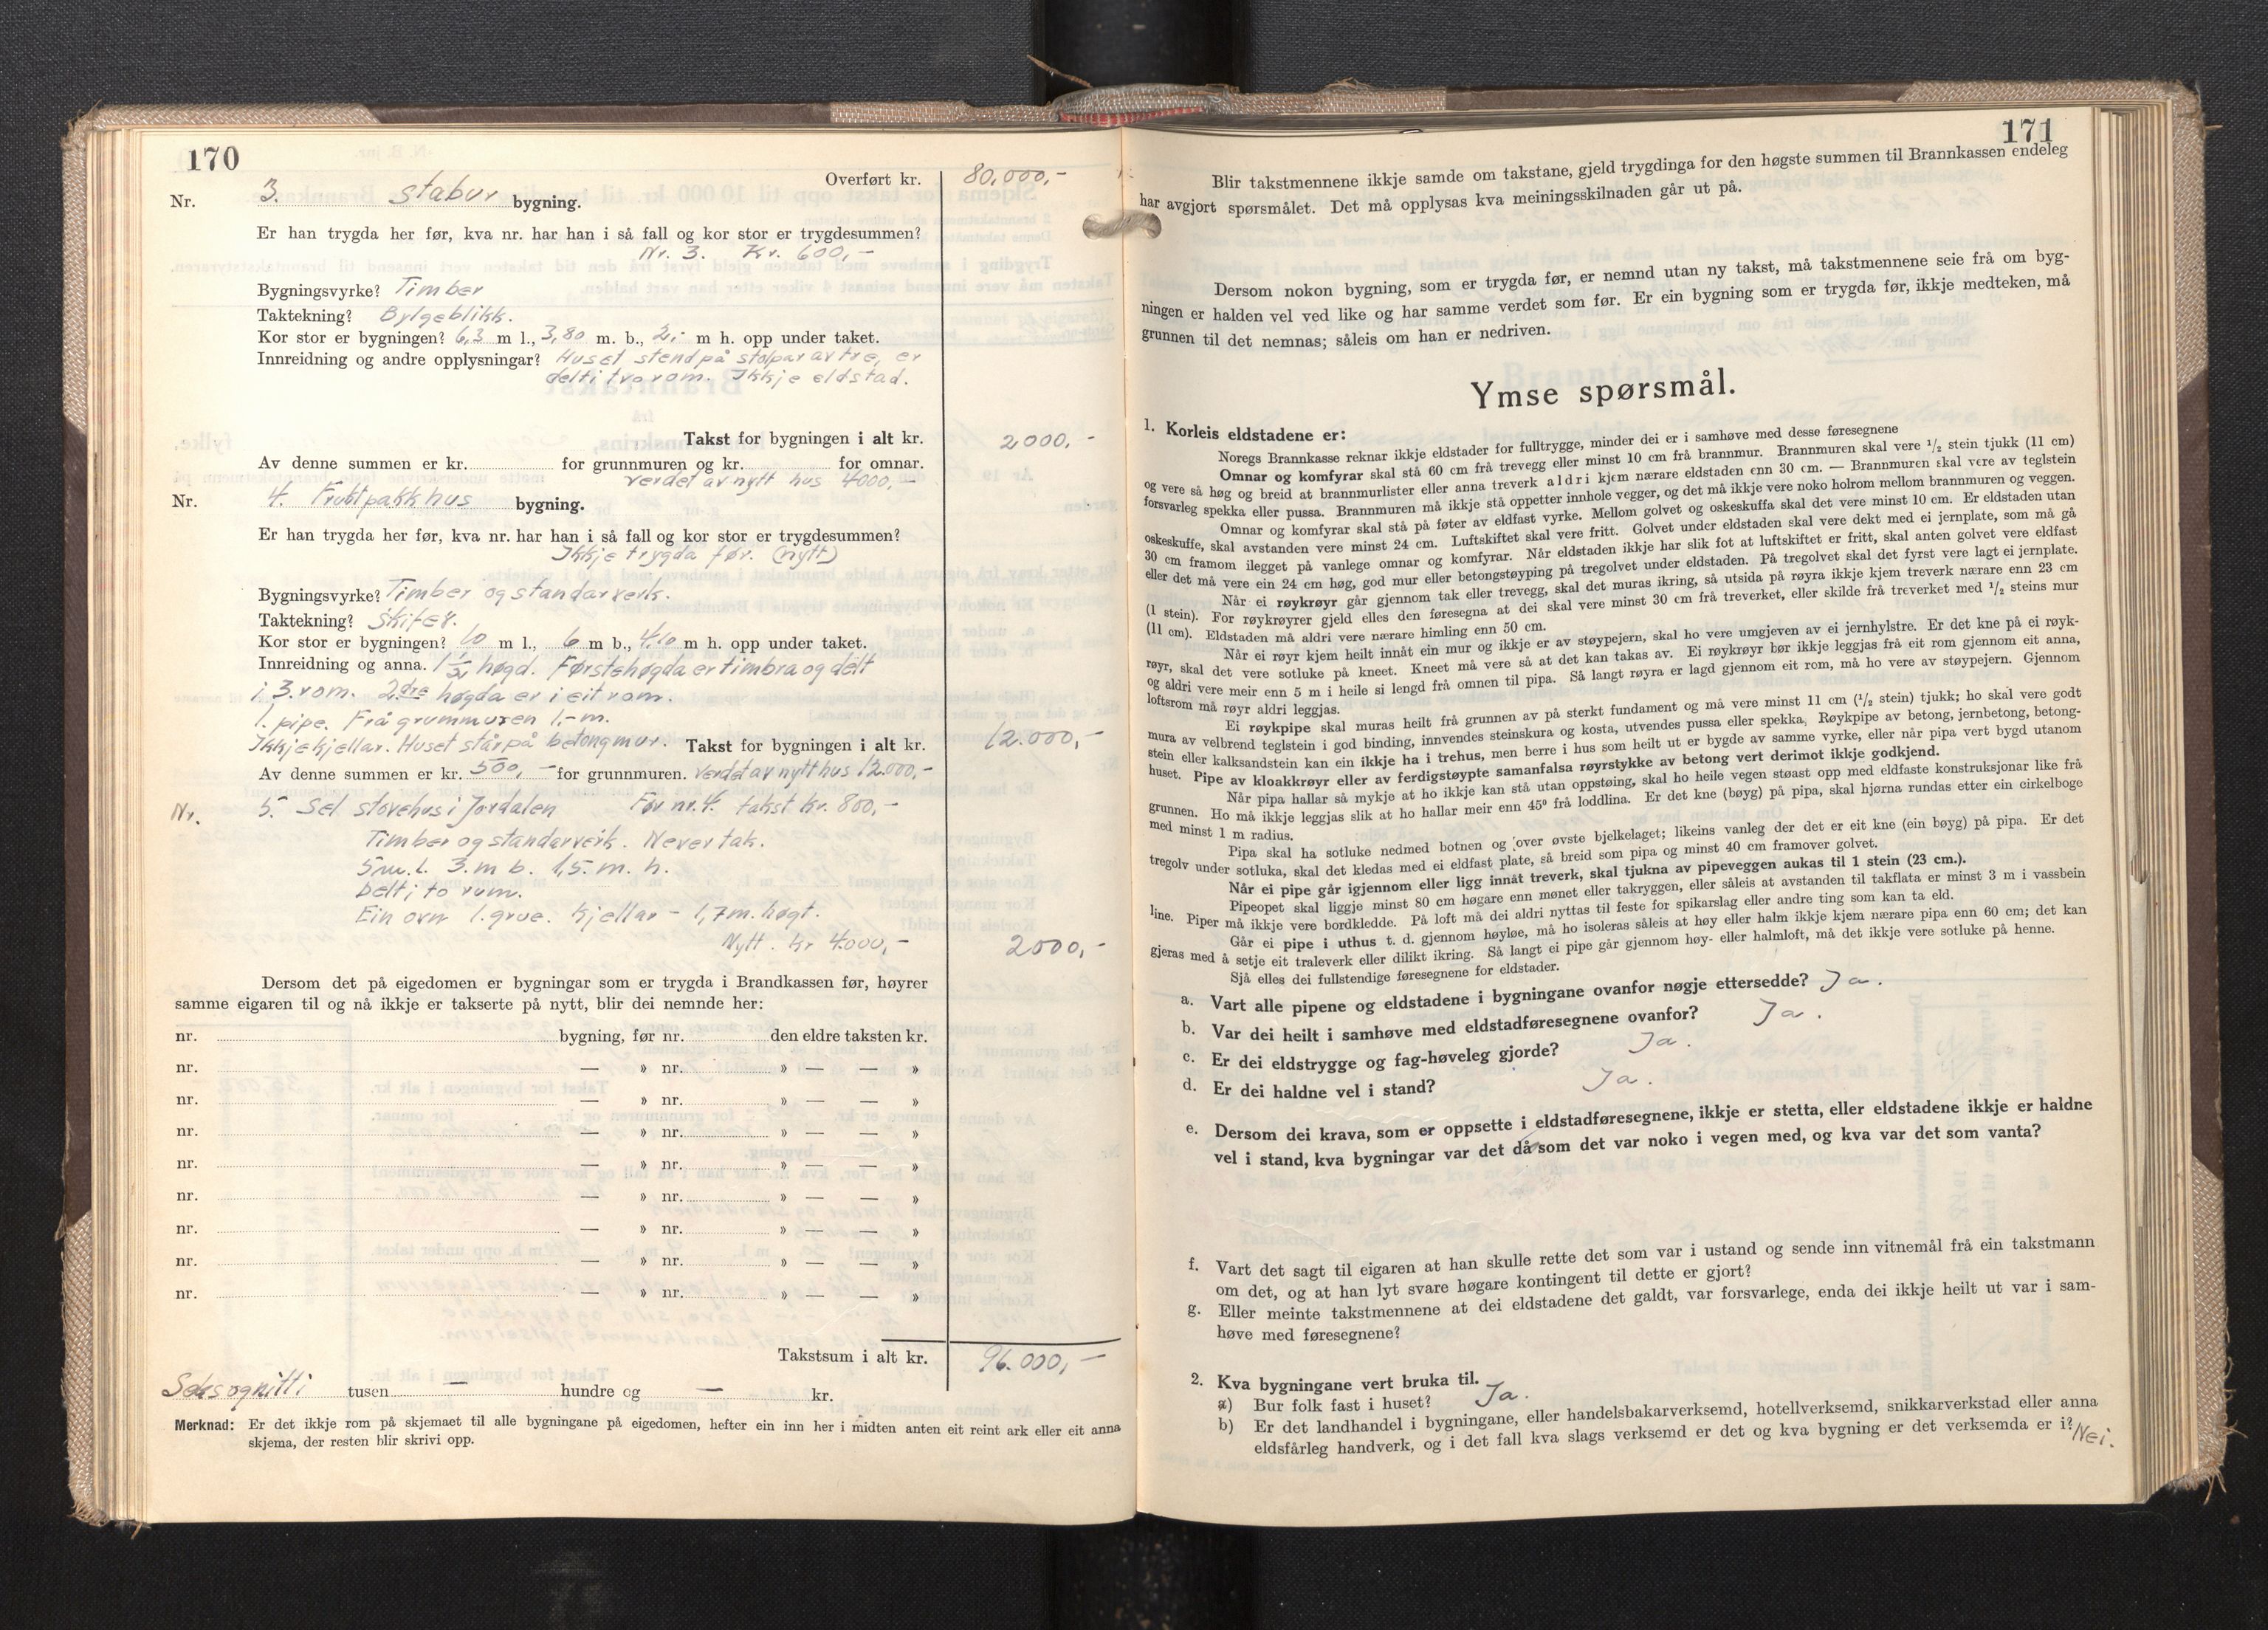 170
Overført kr. 80,000,-
Nr. 3. Stabur bygning.
Er han trygda her før, kva nr. har han i så fall og kor stor er trygdesummen?
Nr. 3. Kr. 600,-
Bygningsvyrke? Timber
Taktekning? Bylgeblikk.
Kor stor er bygningen? 6,3 m l., 3,80 m. b., 2,- m h. opp under taket.
Innreidning og andre opplysningar? Huset stend på stolpar av tre, er
delt i tvo rom. Ikkje eldstad.
Takst for bygningen i alt kr. 2000,-
Av denne summen er kr. for grunnmuren og kr. for omnar.
Verdet av nytt hus 4000,-
Nr. 4. Fruktpakkhus bygning.
Er han trygda her før, kva nr. har han i så fall og kor stor er trygdesummen?
Ikkje trygda før. (nytt)
Bygningsvyrke? Timber og standarverk.
Taktekning? Skifer.
Kor stor er bygningen? 10 m l., 6 m b., 4,10 m h. opp under taket.
Innreidning og anna. 1 1/2 høgd. Førstehøgda er timbra og delt
i 3. rom. 2dre høgda er i eit rom.
1. pipe. Frå grummuren 1,- m.
Ikkje kjellar. Huset står på betongmur. Takst for bygningen i alt kr. 12.000,-
Av denne summen er kr. 500,- for grunnmuren. Verdet av nytt hus 12.000,-
Nr. 5. Sel stovehus i Jordalen Før nr. 4. takst kr. 800,-
Timber og standarverk. Never tak.
5 m. l. 3. m b. 1,5. m. h.
Delt i to rum.
Ein ovn 1. grue. Kjellar - 1,7 m. høgt.
Nytt. kr 4.000,- 2000,-
Dersom det på eigedomen er bygningar som er trygda i Brandkassen før, høyrer
samme eigaren til og nå ikkje er takserte på nytt, blir dei nemnde her:
nr. bygning, før nr. den eldre taksten kr.
nr. — » nr. » — — »
nr. — » nr. » — — »
nr. — » nr. » — — »
nr. — » nr. » — — »
nr. — » nr. » — — »
nr. — » nr. » — — »
nr. — » nr. » — — »
nr. — » nr. » — — »
Takstsum i alt kr. 96.000,-
Seksognitti tusen — hundre og — kr.
Merknad: Er det ikkje rom på skjemaet til alle bygningane på eigedomen, hefter ein inn her i midten anten eit reint ark eller eit anna
skjema, der resten blir skrivi opp.
171
Blir takstmennene ikkje samde om takstane, gjeld trygdinga for den høgste summen til Brannkassen endeleg
har avgjort spørsmålet. Det må opplysas kva meiningsskilnaden går ut på.
Dersom nokon bygning, som er trygda før, er nemnd utan ny takst, må takstmennene seie frå om byg-
ningen er halden vel ved like og har samme verdet som før. Er ein bygning som er trygda før, ikkje medteken, må
grunnen til det nemnas; såleis om han er nedriven.
Ymse spørsmål.
1. Korleis eldstadene er:
Noregs Brannkasse reknar ikkje eldstader for fulltrygge, minder dei er i samhøve med desse føresegnene
Omnar og komfyrar skal stå 60 cm frå trevegg eller minst 10 cm frå brannmur. Brannmuren skal vere 1/2 stein tjukk (11 cm)
og vere så høg og breid at brannmurlister eller anna treverk aldri kjem nærare eldstaden enn 30 cm. — Brannmuren skal vere av teglstein
forsvarleg spekka eller pussa. Brannmuren må ikkje stå oppetter innhole vegger, og det må ikkje vere noko holrom mellom brannmuren og veggen.
Omnar og komfyrar skal stå på føter av eldfast vyrke. Mellom golvet og oskeskuffa skal det vere minst 10 cm. Er eldstaden utan
oskeskuffe, skal avstanden vere minst 24 cm. Luftskiftet skal vere fritt. Golvet under eldstaden skal vere dekt med ei jernplate, som må gå
30 cm framom ilegget på vanlege omnar og komfyrar. Når eldstaden ikkje har slik fot at luftskiftet er fritt, skal anten golvet vere eldfast
eller det må vere ein 24 cm høg, god mur eller betongstøyping på tregolvet under eldstaden. På tregolvet skal det fyrst vere lagt ei jernplate.
Når ei røykrøyr går gjennom tak eller trevegg, skal det muras ikring, så utsida på røyra ikkje kjem treverk nærare enn 23 cm
(1 stein). For røykrøyrer gjeld elles den føresegna at dei skal vere minst 30 cm frå treverket, eller skilde frå treverket med 1/2 steins mur
(11 cm). Eldstaden må aldri vere nærare himling enn 50 cm.
Når ei røyr kjem heilt innåt ein mur og ikkje er av støypejern, skal ho vere umgjeven av ei jernhylstre. Er det kne på ei røyk-
røyr, skal det vere sotluke på kneet. Kneet må vere så at det kan takas av. Ei røykrøyr bør ikkje leggjas frå eit rom gjennom eit anna,
og aldri vere meir enn 5 m i heile si lengd frå omnen til pipa. Så langt røyra er lagd gjennom eit rom, må ho vere av støypejern. Gjennom
loftsrom må røyr aldri leggjas.
Ei røykpipe skal muras heilt frå grunnen av på sterkt fundament og må vere minst 11 cm (1/2 stein) tjukk; ho skal vere godt
mura av velbrend teglstein i god binding, innvendes steinskura og kosta, utvendes pussa eller spekka. Røykpipe av betong, jernbetong, betong-
stein eller kalksandstein kan ein ikkje ha i trehus, men berre i hus som heilt ut er bygde av samme vyrke, eller når pipa vert bygd utanom
huset. Pipe av kloakkrøyr eller av ferdigstøypte samanfalsa røyrstykke av betong vert derimot ikkje godkjend.
Når pipa hallar så mykje at ho ikkje kan stå utan oppstøing, skal ho heile vegen støast opp med eldfaste konstruksjonar like frå
grunnen. Ho må ikkje leggjas slik at ho hallar meir enn 45° frå loddlina. Er det kne (bøyg) på pipa, skal hjørna rundas etter ein cirkelboge
med minst 1 m radius.
Pipa skal ha sotluke nedmed botnen og over øvste bjelkelaget; likeins vanleg der det er eit kne (ein bøyg) på pipa. Er det
tregolv under sotluka, skal det kledas med ei eldfast plate, så breid som pipa og minst 40 cm framover golvet.
Når ei pipe går igjennom eller ligg innåt treverk, skal tjukna av pipeveggen aukas til 1 stein (23 cm.).
Pipeopet skal liggje minst 80 cm høgare enn mønet eller takryggen, eller såleis at avstanden til takflata er minst 3 m i vassbein
line. Piper må ikkje vere bordkledde. På loft må dei aldri nyttas til feste for spikarslag eller andre ting som kan ta eld.
Går ei pipe i uthus t. d. gjennom høyløe, må ho isoleras såleis at høy eller halm ikkje kjem nærare pipa enn 60 cm; det kan
gjeras med å setje eit traleverk eller dilikt ikring. Så langt ei pipe går gjennom høy- eller halmloft, må det ikkje vere sotluke på henne.
Sjå elles dei fullstendige føresegnene for eldstader.
a. Vart alle pipene og eldstadene i bygningane ovanfor nøgje ettersedde? Ja.
b. Var dei heilt i samhøve med eldstadføresegnene ovanfor? Ja.
c. Er dei eldstrygge og fag-høveleg gjorde? Ja.
d. Er dei haldne vel i stand? Ja.
e. Dersom dei krava, som er oppsette i eldstadføresegnene, ikkje er stetta, eller eldstadene ikkje er haldne
vel i stand, kva bygningar var det då som det var noko i vegen med, og kva var det som vanta?
f. Vart det sagt til eigaren at han skulle rette det som var i ustand og sende inn vitnemål frå ein takstmann
om det, og at han lyt svare høgare kontingent til dette er gjort?
g. Eller meinte takstmennene at dei eldstadene det galdt, var forsvarlege, enda dei ikkje heilt ut var i sam-
høve med føresegnene?
2. Kva bygningane vert bruka til.
a) Bur folk fast i huset? Ja.
b) Er det landhandel i bygningane, eller handelsbakarverksemd, hotellverksemd, snikkarverkstad eller anna
eldsfårleg handverk, og i det fall kva slags verksemd er det og kva bygning er det verksemda er i? Nei.